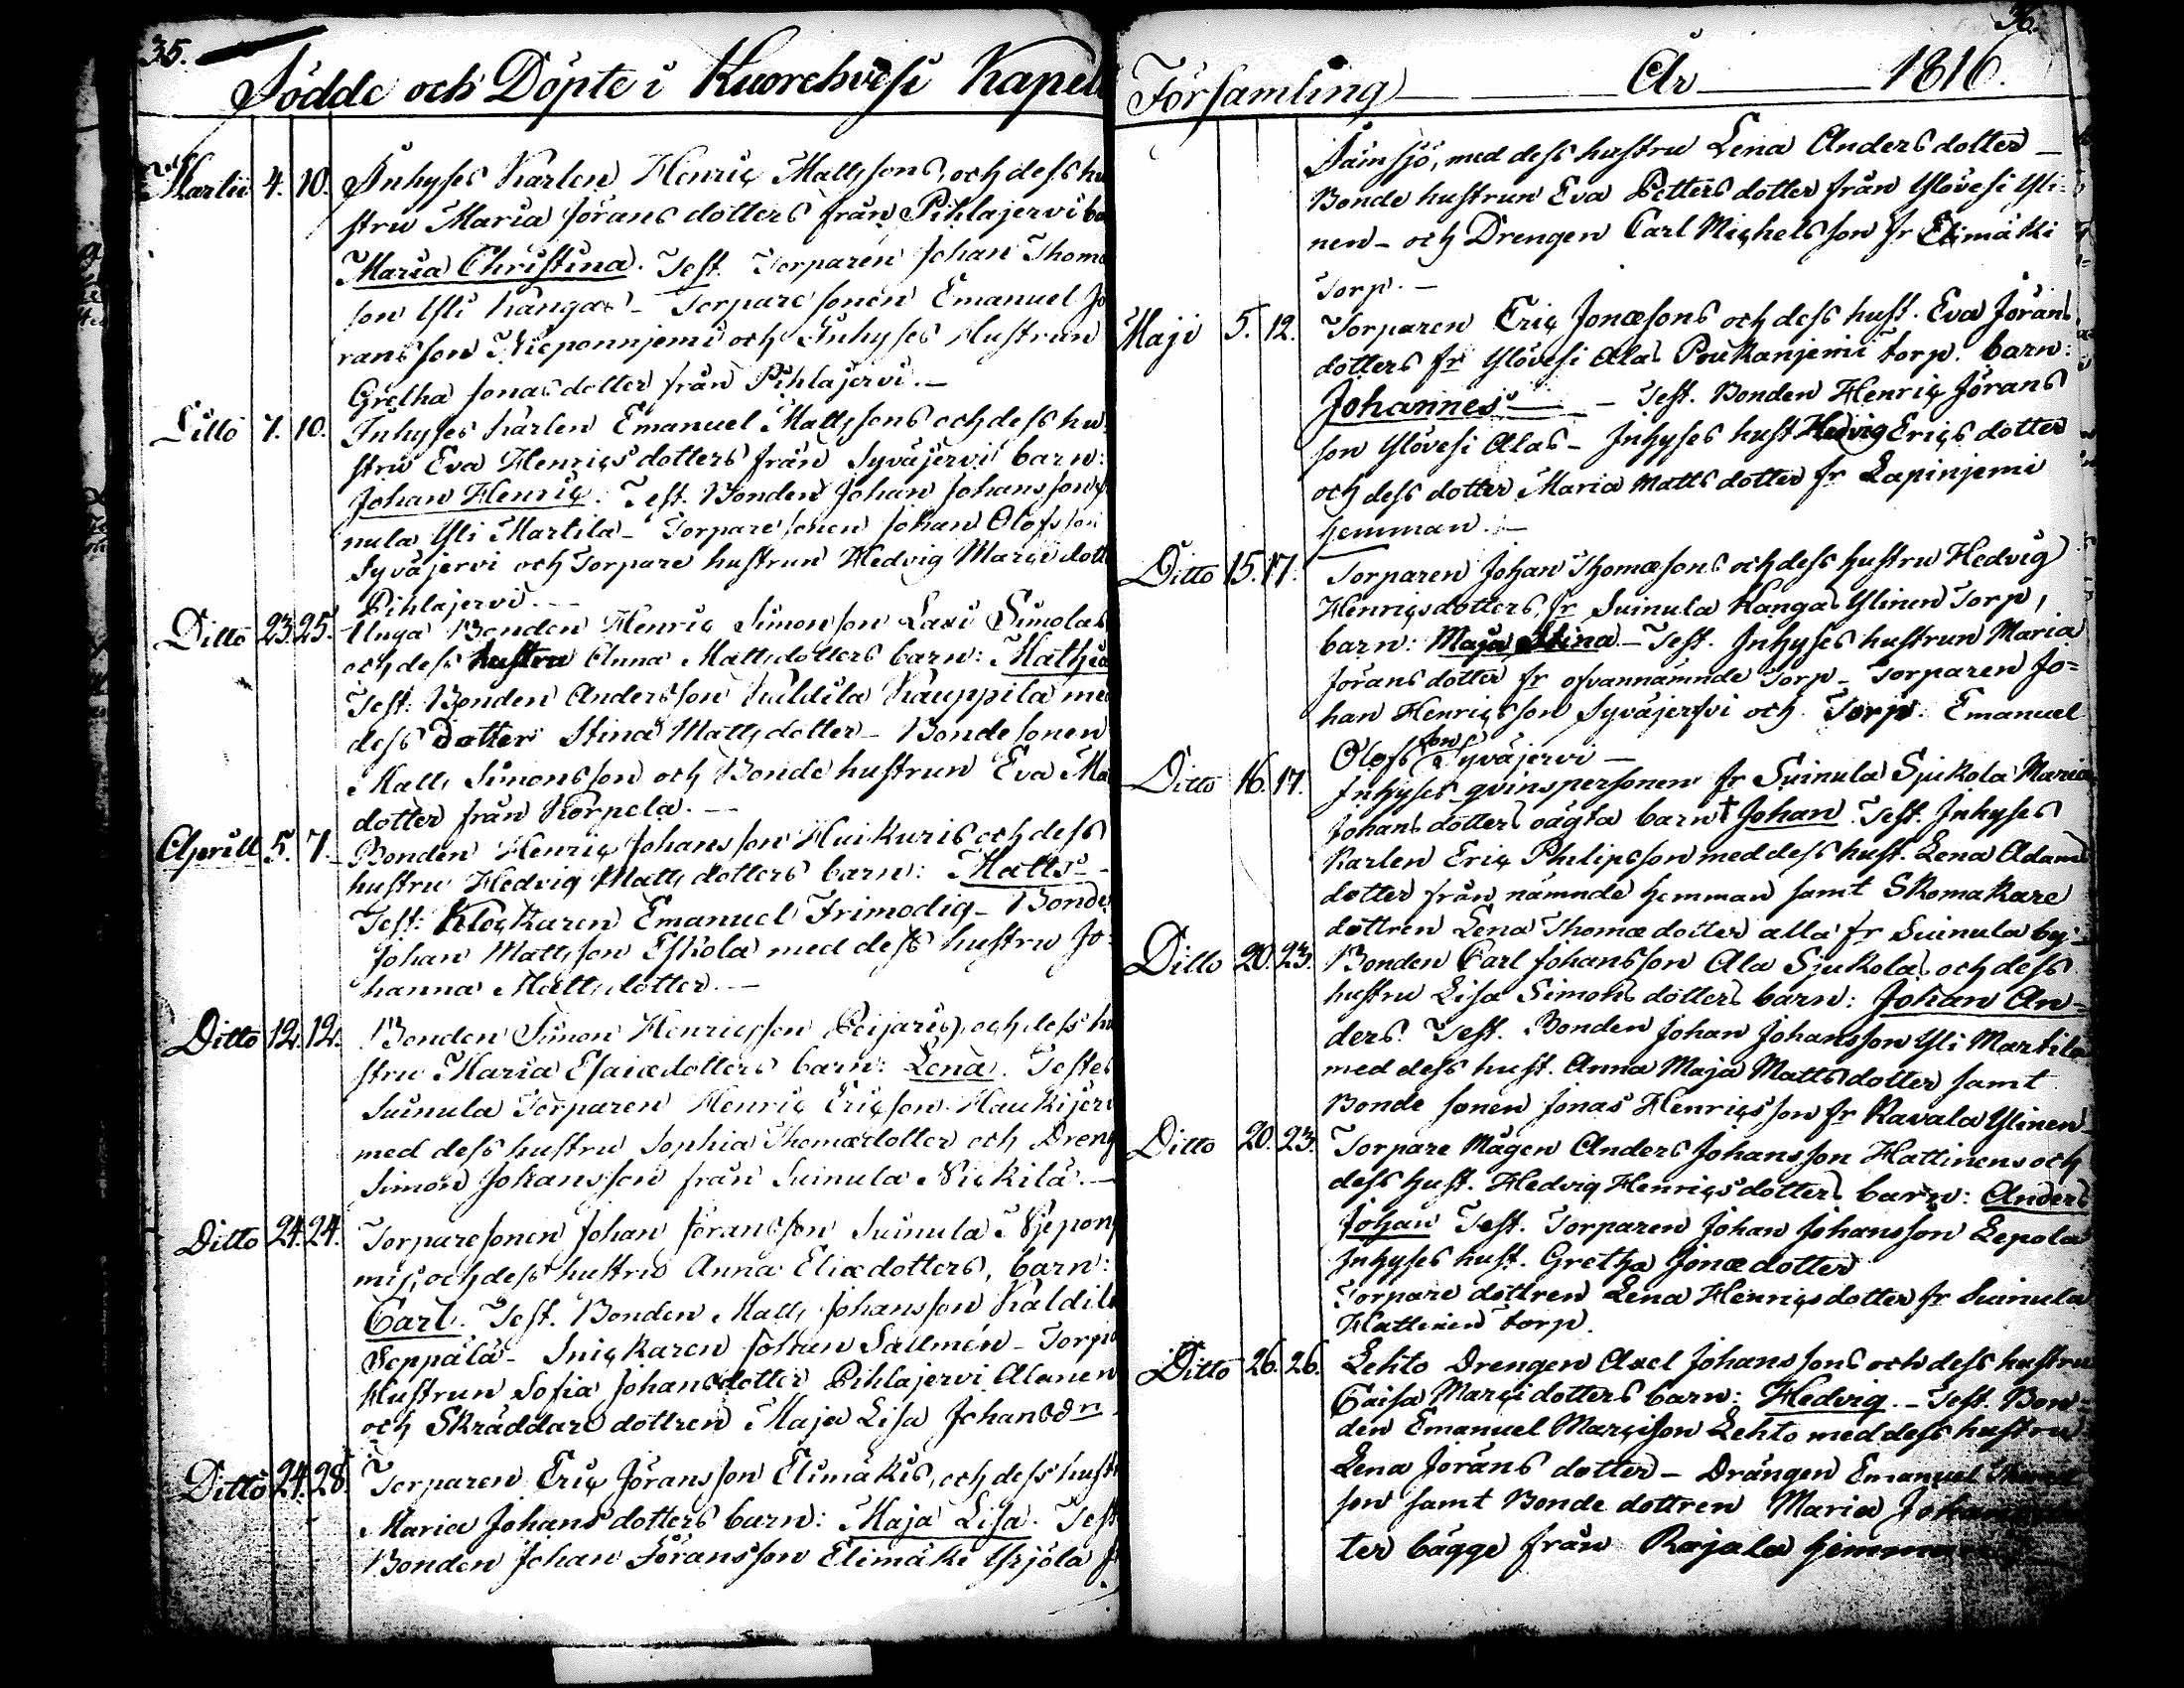 35.
Födde och Döpte i Kuorehvesi Kapell
Martii 4. 10. Inhyses Karlen Henric Mattssons, och dess hu
stru Maria Jörans dotters från Pihlajervi ba
Maria Christina. Test. Torparen Johan Thomæ
son Yli Kangas - Torpare sonen Emanuel Jö
rans son Nieponnjemi och Inhyses Hustrun
Gretha Jonasdotter från Pihlajervi. -
Ditto 7. 10. Inhyses Karlen Emanuel Mattssons och dess hu
stru Eva Henrics dotters från Syväjervi barn:
Johan Henric. Test. Bonden Johan Johansson
nula Yli Martila - Torpare sonen Johan Olofsson
Syväjervi och Torpare hustrun Hedvig Marci dott
Pihlajervi. -
Ditto 23. 25. Unga Bonden Henric Simonsson Laxi Simolas
och dess hustru Anna Mattsdotters barn: Mathias
Test: Bonden Andersson Kaldila Kauppila med
dess dotter Stina Mattsdotter - Bondesonen
Matts Simonsson och Bonde hustrun Eva Ma
dotter från Korpela. -
Aprill 5. 7. Bonden Henric Johansson Huikuris och dess
hustru Hedvig Matts dotters barn: Matts -
Test: Klockaren Emanuel Frimodig - Bonde
Johan Mattsson Eskola med dess hustru Jo-
hanna Mattsdotter. -
Ditto 12. 12. Bonden Simon Henricsson Peijaris, och dess hu
stru Maria Esaiædotters barn: Lena. Testes
Suinula Torparen Henric Ericson Haukijer
med dess hustru Sophia Thomædotter och Dreng
Simon Johansson från Suinula Nickilä. -
Ditto 24. 24. Torparesonen Johan Jöransson Suinula Niepon
mis, och dess hustru Anna Eliædotters, barn:
Carl. Test. Bonden Matts Johansson Kaldila
Seppälä - Snickaren Johan Sallmén - Torpa
Hustrun Sofia Johansdotter Pihlajervi Alanen
och Skräddare dottren Maja Lisa Johansdr
Ditto 24. 28. Torparen Eric Jöransson Elimäkis, och dess hust
Maria Johans dotters barn: Maja Lisa. Test
Bonden Johan Jöransson Elimäki Yrjölä
36.
Församling År 1816.
Sämsjö, med dess hustru Lena Anders dotter -
Bonde hustrun Eva Petters dotter från Ylövesi Yli-
nen - och Drengen Carl Michelsson fr Elimäki
Torp. -
Maji 5. 12. Torparen Eric Jonæsons och dess hust. Eva Jörans
dotters fr Ylövesi Alas Poukanjemi torp. barn:
Johannes - Test. Bonden Henric Jörans
son Ylövesi Alas - Inhyses hust Hedvig Erics dotter
och dess dotter Maria Matts dotter fr Lapinjemi
hemman. -
Ditto 15. 17. Torparen Johan Thomæsons och dess hustru Hedvig
Henricsdotters, fr Suinula Kangas Ylinen Torp,
barn: Maja Stina. - Test. Inhyses hustrun Maria
Jörans dotter fr ofvannämnde Torp - Torparen Jo-
han Henricsson Syväjervi och Torp. Emanuel
Olofsson Syväjervi -
Ditto 16. 17. Inhyses qvinspersonen fr Suinula Sjukola Maria
Johans dotters oägta barn † Johan. Test. Inhyses
Karlen Eric Philipsson med dess hust. Lena Adams
dotter från nämnde hemman samt Skomakare
dottren Lena Thomæ dotter alla fr Suinula by -
Ditto 20. 23. Bonden Carl Johansson Ala Sjukolas och dess
hustru Lisa Simons dotters barn: Johan An-
ders. Test. Bonden Johan Johansson Yli Martila
med dess hust. Anna Maja Matts dotter samt
Bonde sonen Jonas Henricsson fr Ravala Ylinen -
Ditto 20. 23. Torpare Mågen Anders Johansson Hattinens och
dess hust. Hedvig Henrics dotters barn: Anders
Johan Test. Torparen Johan Johansson Lepola
Inhyses hust. Gretha Jonæ dotter
Torpare dottren Lena Henrics dotter fr Suinula
Hattinen torp.
Ditto 26. 26. Lehto Drengen Axel Johanssons och dess hustru
Caisa Marci dotters barn: Hedvig. - Test. Bon-
den Emanuel Marcison Lehto med dess hustru
Lena Jörans dotter - Drängen Emanuel
son samt Bonde dottren Maria
ter bägge från Rajala hemman